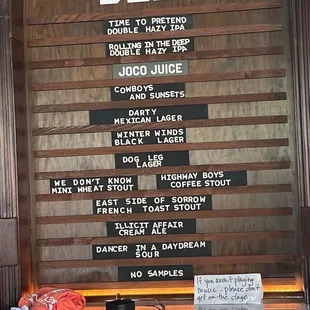 TIME TO PRETEND
DOUBLE HAZY IPA
ROLLING IN THE DEEP
DOUBLE HAZY IPA
JOCO JUICE
COWBOYS
AND SUNSETS
DARTY
MEXICAN LAGER
WINTER WINDS
BLACK LAGER
DOG LEG
LAGER
WE DON'T KNOW
MINI WHEAT STOUT
HIGHWAY BOYS
COFFEE STOUT
EAST SIDE OF SORROW
FRENCH TOAST STOUT
ILLICIT AFFAIR
CREAM ALE
DANCER IN A DAYDREAM
SOUR
NO SAMPLES
If you aren't playing
music... please don't
get on the stage.